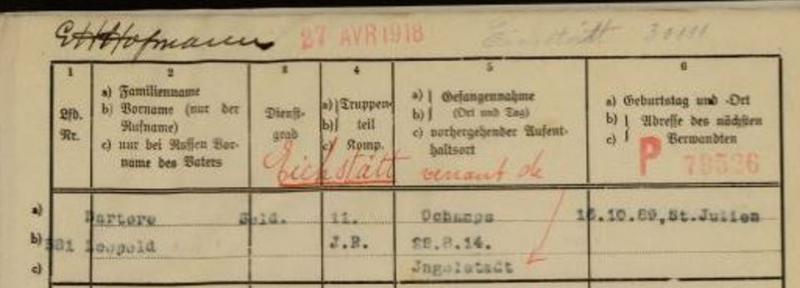 Hofmann 27 AVR 1918 Eichstätt
1 2 3 4 5 6
Lfd. Nr.
a) Familienname
b) Vorname (nur der Rufname)
c) nur bei Russen Vorname des Vaters
Dienstgrad
a) Truppen-
b) teil
c) Komp.
a) Gefangennahme
b) (Ort und Tag)
c) vorhergehender Aufenthaltsort
a) Geburtstag und -Ort
b) Adresse des nächsten
c) Verwandten
Eichstätt venant de
P 79526
a) Sold. 11. Ochamps 15.10.89, St.Julien
b) 581 Leopold J.R. 22.8.14.
c) Jngolstadt